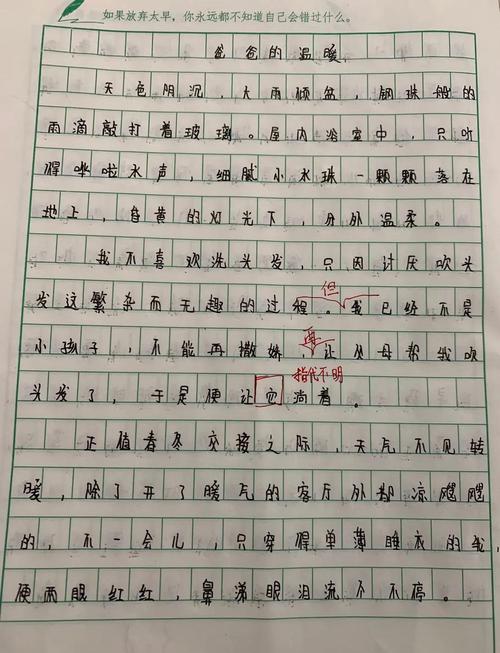 如果放弃太早，你永远都不知道自己会错过什么。
爸爸的温暖
天色阴沉，大雨倾盆，钢珠般的
雨滴敲打着玻璃。屋内浴室中，只听
得哗啦水声，细腻小水珠一颗颗落在
地上，昏黄的灯光下，分外温柔。
我不喜欢洗头发，只因讨厌吹头
但
发这繁杂而无趣的过程。我已经不是
再
小孩子，不能再撒娇，让父母帮我吹
指代不明
头发了，于是便让它淌着。
正值春冬交接之际，天气不见转
暖，除了开了暖气的客厅外却凉飕飕
的，不一会儿，只穿得单薄睡衣的我，
便两眼红红，鼻涕眼泪流个不停。